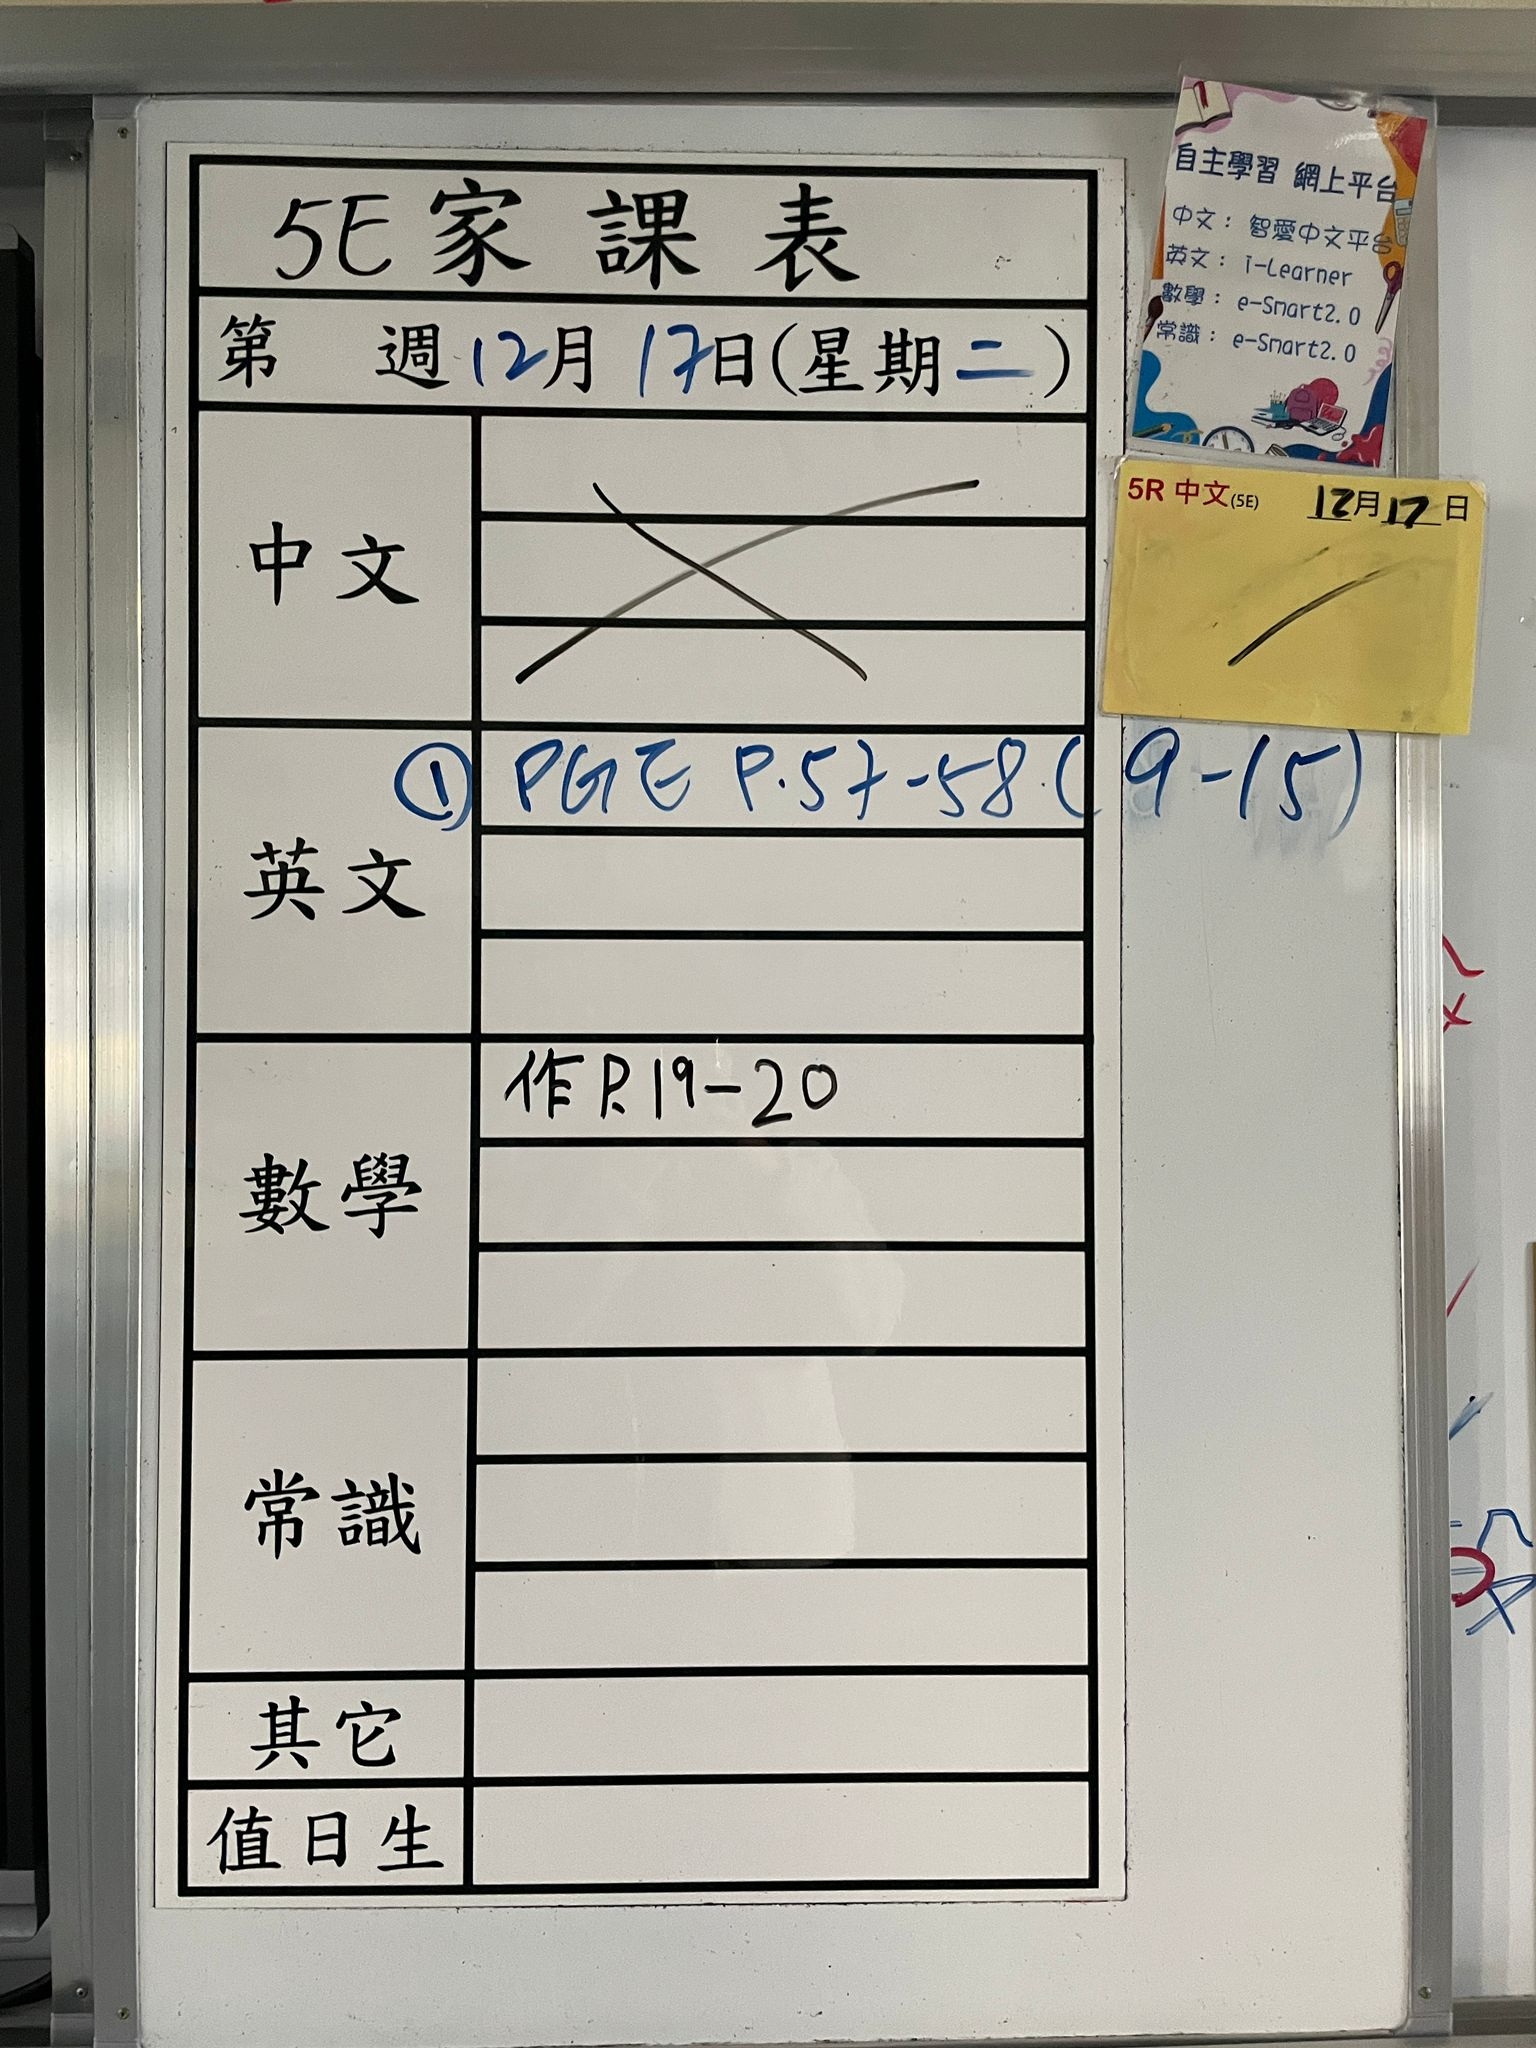 5E 家課表
第 週 12月 17日(星期二)
中文
英文
① PGE P.57-58 (9-15)
數學
作 P.19-20
常識
其它
值日生
自主學習 網上平台
中文： 智愛中文平台
英文： i-Learner
數學： e-Smart2.0
常識： e-Smart2.0
5R 中文(5E) 12月17日